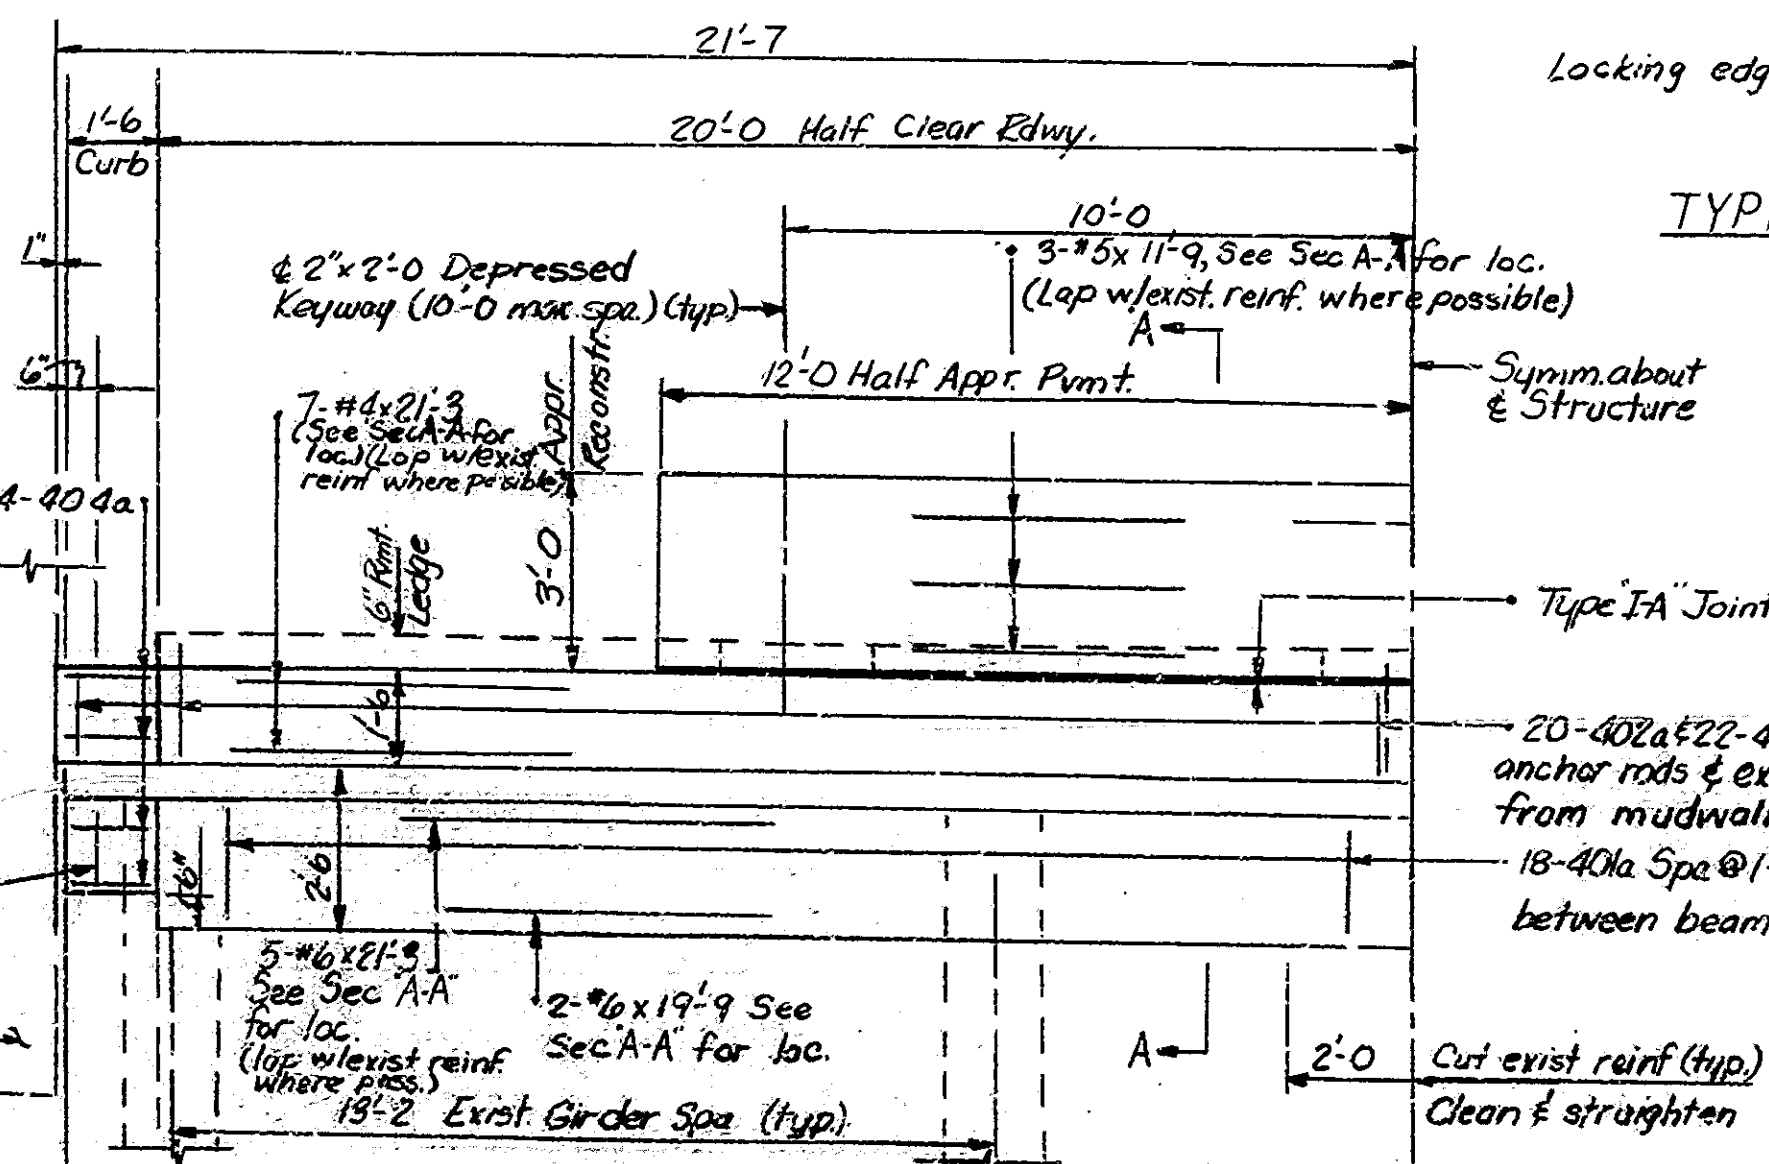 21'-7
Locking edg
1'-6
Curb
20'-0 Half Clear Rdwy.
TYP
10'-0
1"
¢ 2"x2'-0 Depressed
Keyway (10'-0 max spa.) (typ.)
3-#5x 11'-9, See Sec A-A for loc.
(Lap w/exist. reinf. where possible)
A
6"
12'-0 Half Appr. Pvmt.
Symm. about
¢ Structure
7-#4x21'-3
(See Sec A-A for
loc.) (Lap w/exist.
reinf where possible)
3'-0 Appr.
Reconstr.
4-404a
6" Pvmt.
Ledge
Type "I-A" Joint
1'-6
20-402a & 22-4
anchor rods & ex
from mudwall
18-401a Spa @ 1-
between beam
6"
2'-6
5-#6x21'-3
See Sec "A-A"
for loc.
(lap w/exist reinf.
where poss.)
2-#6 x 19'-9 See
Sec "A-A" for loc.
A
2'-0
Cut exist reinf (typ.)
Clean & straighten
13'-2 Exist. Girder Spa (typ.)